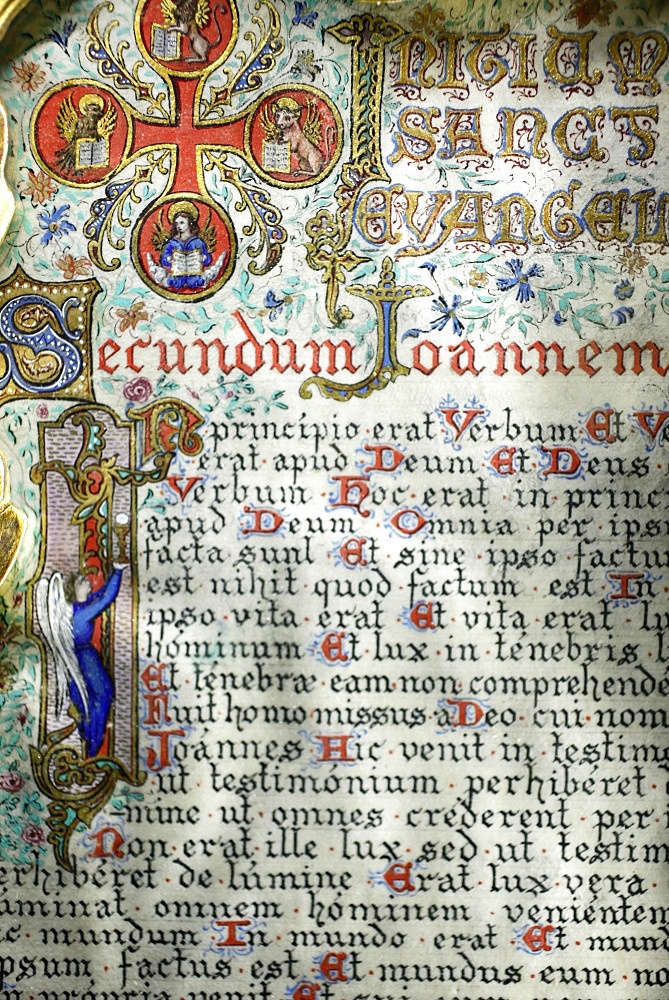 INITIUM
SANCT
EVANGELI
Secundum Joannem
IN principio erat Verbum Et Ve
erat apud Deum Et Deus
Verbum Hoc erat in princ
apud Deum Omnia per ips
facta sunt Et sine ipso factu
est nihil quod factum est In
ipso vita erat Et vita erat lu
hóminum Et lux in ténebris l
Et ténebræ eam non comprehendé
Fuit homo missus a Deo cui nom
Joánnes Hic venit in testim
ut testimónium perhibéret
mine ut omnes créderent per
Non erat ille lux sed ut testim
erhibéret de lúmine Erat lux vera
uminat omnem hóminem veniéntem
c mundum In mundo erat Et mund
psum factus est Et mundus eum no
n própria venit Et sui eum non